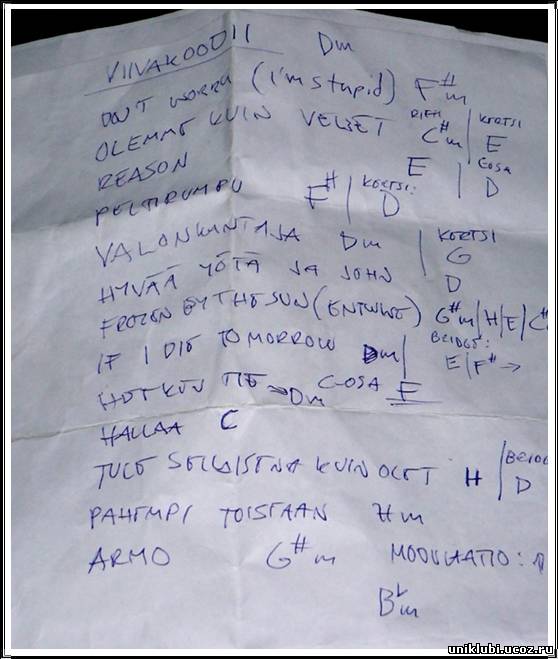 VIIVAKOODII Dm
DON'T WORRY (I'm stupid) F#m
OLEMME KUIN VELJET RIFFI C#m | KERTSI E
REASON E | C-OSA D
PELTIRUMPU F# | KERTSI: D
VALONKANTAJA Dm | KERTSI G
HYVÄÄ YÖTÄ JA JOHN D
FROZEN BY THE SUN (ENTWINE) G#m | H | E | C#
IF I DIE TOMORROW Dm | BRIDGE: E | F# →
HETKEN TIE → Dm C-OSA F
HALLAA C
TULE SELLAISENA KUIN OLET H | BRIDGE D
PAHEMPI TOISTAAN Hm
ARMO G#m MODULAATIO:
Bbm
uniklubi.ucoz.ru